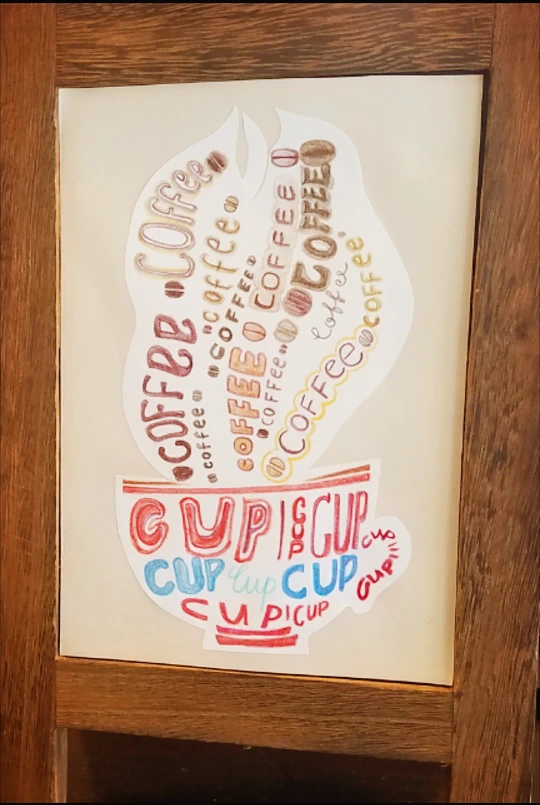 COFFee
COFFEE
coffee
COFFEE
COFFEE
COFFee
COFFEE
coffee
coffee
COFFEE
COFFEE
coffee
COFFee
CUP
CUP
CUP
cup
CUP
Cup
CUP
CUP
CUP
CUP